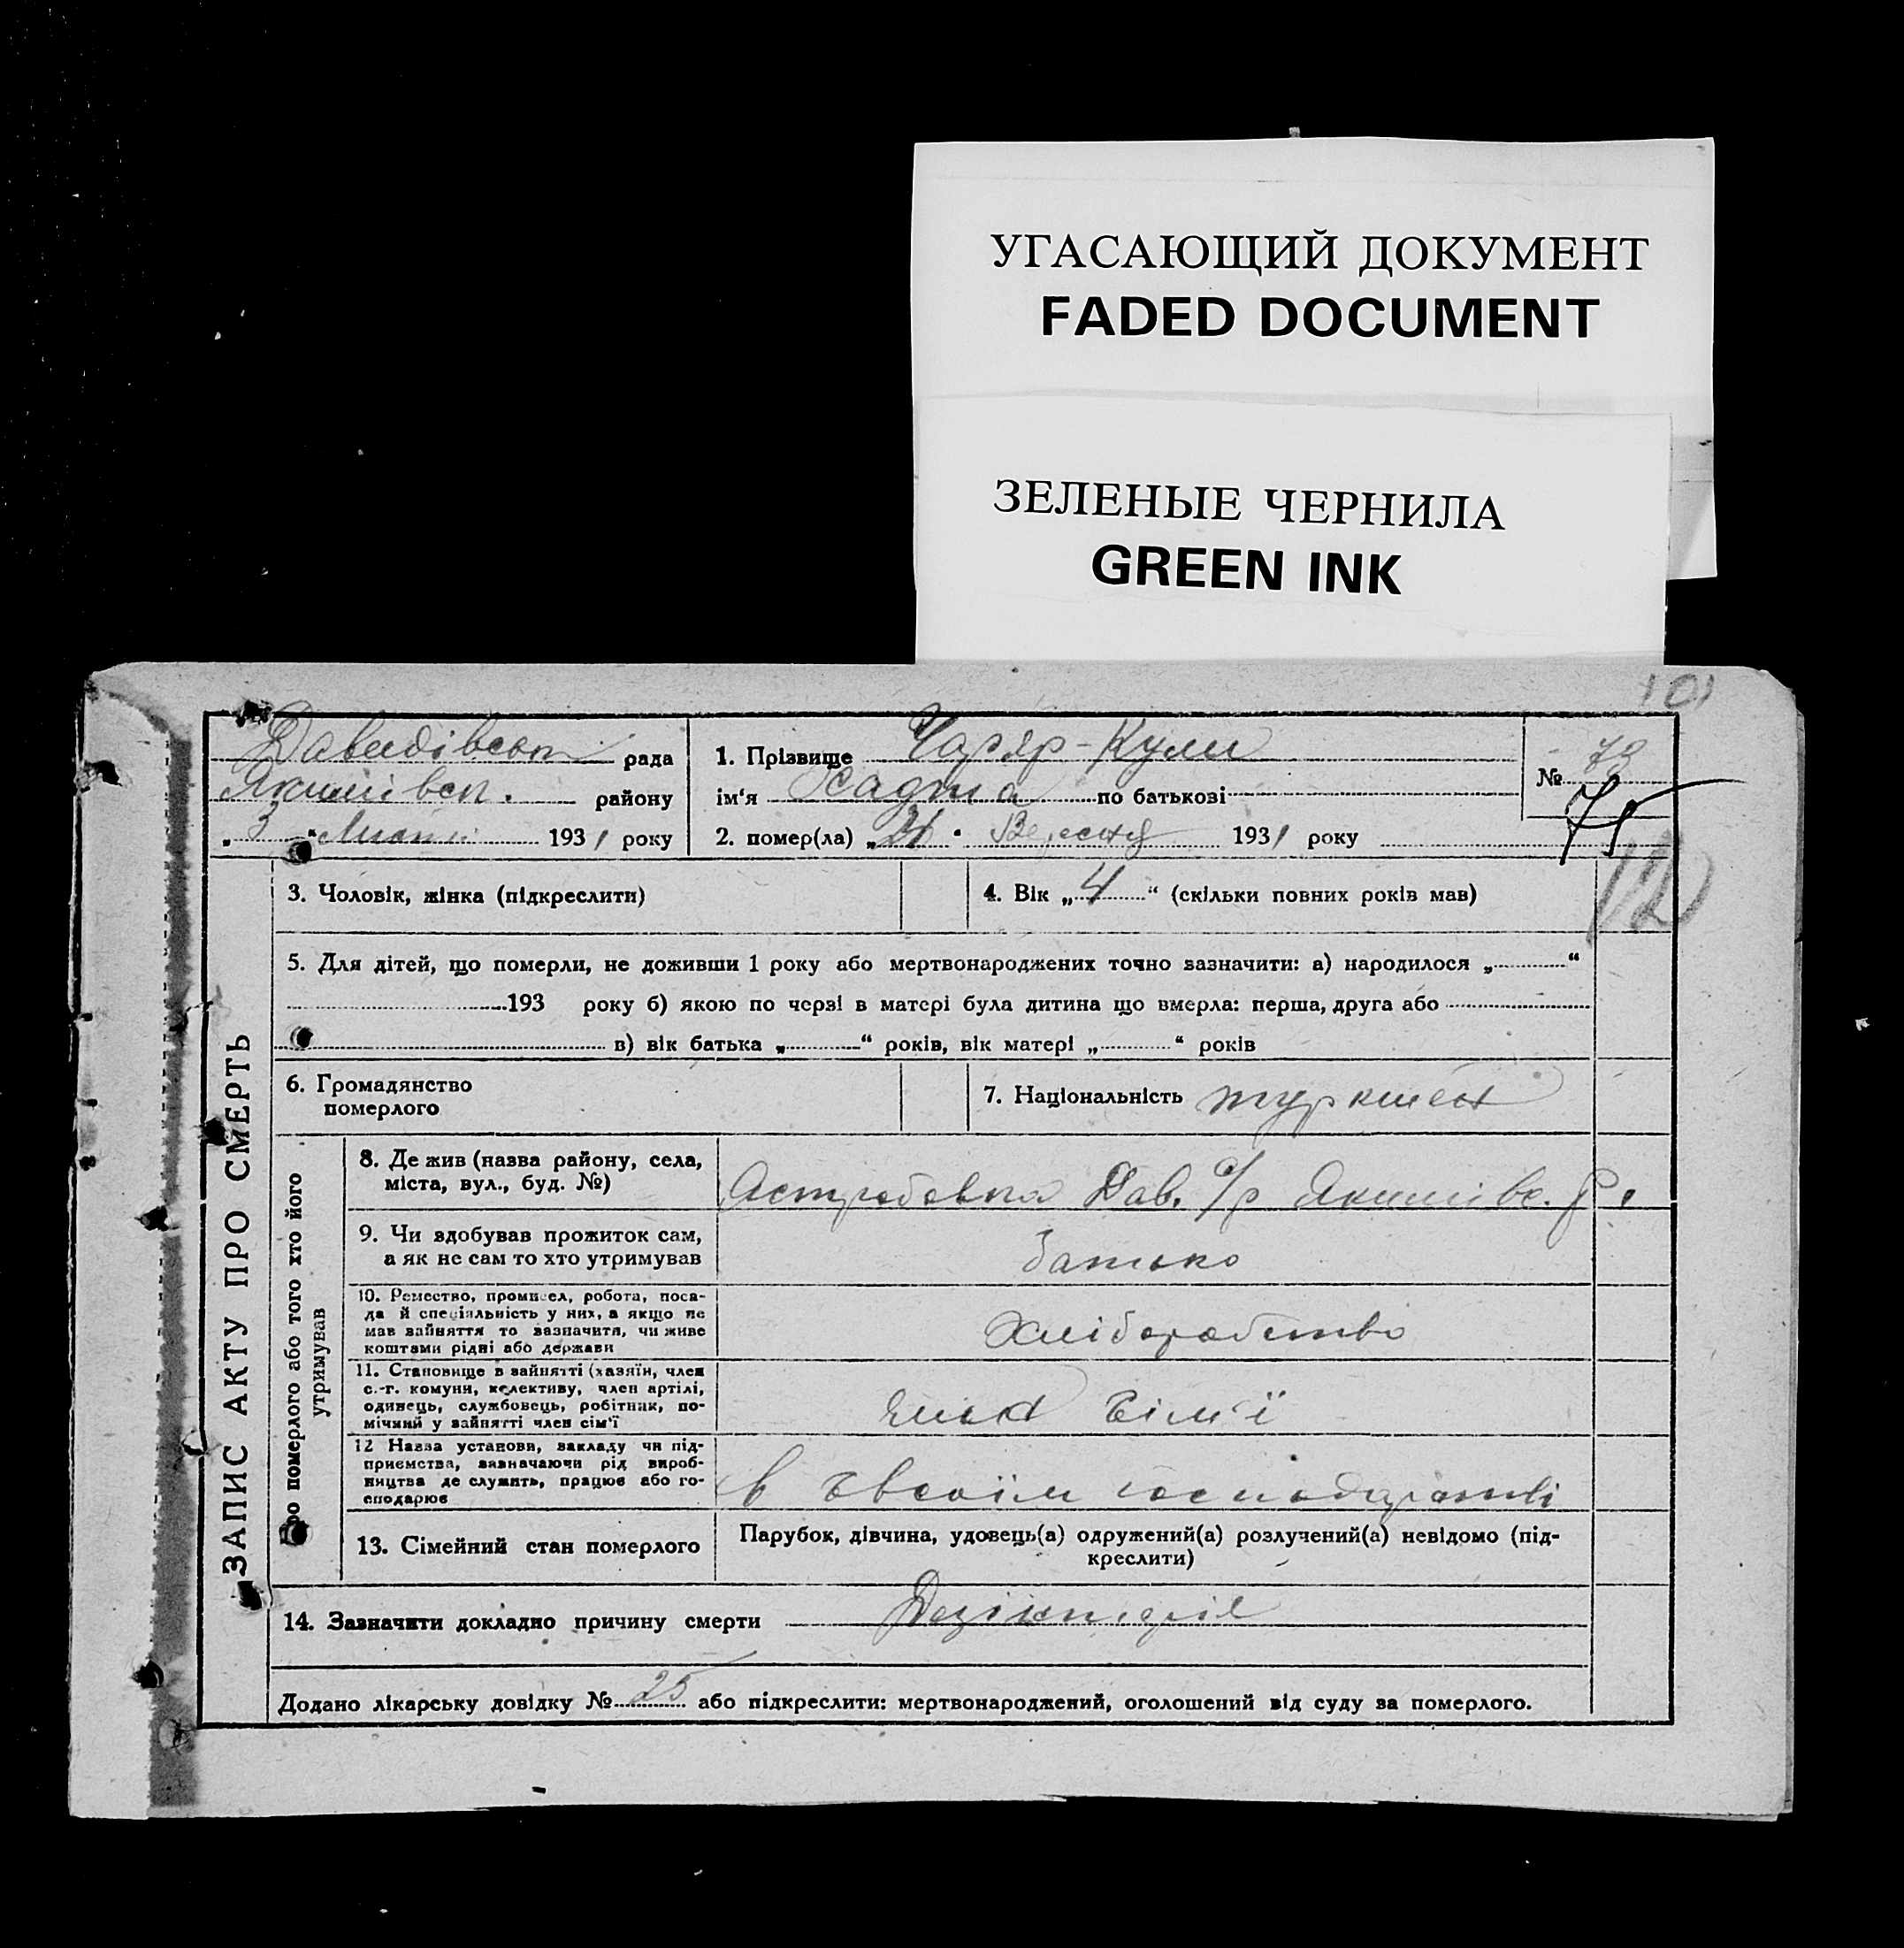 УГАСАЮЩИЙ ДОКУМЕНТ
FADED DOCUMENT
ЗЕЛЕНЫЕ ЧЕРНИЛА
GREEN INK
101
Давидівськ рада
Якимівськ. району
„ 3 “ 1931 року
1. Прізвище Чаряр-Кули
ім‘я по батькові
2. помер(ла) „ “ Вересня 1931 року
№ 73
75
ЗАПИС АКТУ ПРО СМЕРТЬ
3. Чоловік, жінка (підкреслити)
4. Вік „ 4 “ (скільки повних років мав)
5. Для дітей, що померли, не доживши 1 року або мертвонароджених точно зазначити: а) народилося „ “
193 року б) якою по черзі в матері була дитина що вмерла: перша, друга або
в) вік батька „ “ років, вік матері „ “ років
6. Громадянство
померлого
7. Національність туркмен
Про померлого або того хто його
утримував
8. Де жив (назва району, села,
міста, вул., буд. №)
Дав. с/р Якимівс. р.
9. Чи здобував прожиток сам,
а як не сам то хто утримував
батько
10. Ремество, промисел, робота, поса-
да й спеціяльність у них, а якщо не
мав зайняття то зазначити, чи живе
коштами рідні або держави
Хліборобство
11. Становище в зайнятті (хазяїн, член
с.-г. комуни, колективу, член артілі,
одинець, службовець, робітник, по-
мічний у зайнятті член сім‘ї
член сім'ї
12 Назва установи, закладу чи під-
приємства, зазначаючи рід вироб-
ництва де служить, працює або го-
сподарює
в своїм господарстві
13. Сімейний стан померлого
Парубок, дівчина, удовець(а) одружений(а) розлучений(а) невідомо (під-
креслити)
14. Зазначити докладно причину смерти
Додано лікарську довідку № 25 або підкреслити: мертвонароджений, оголошений від суду за померлого.